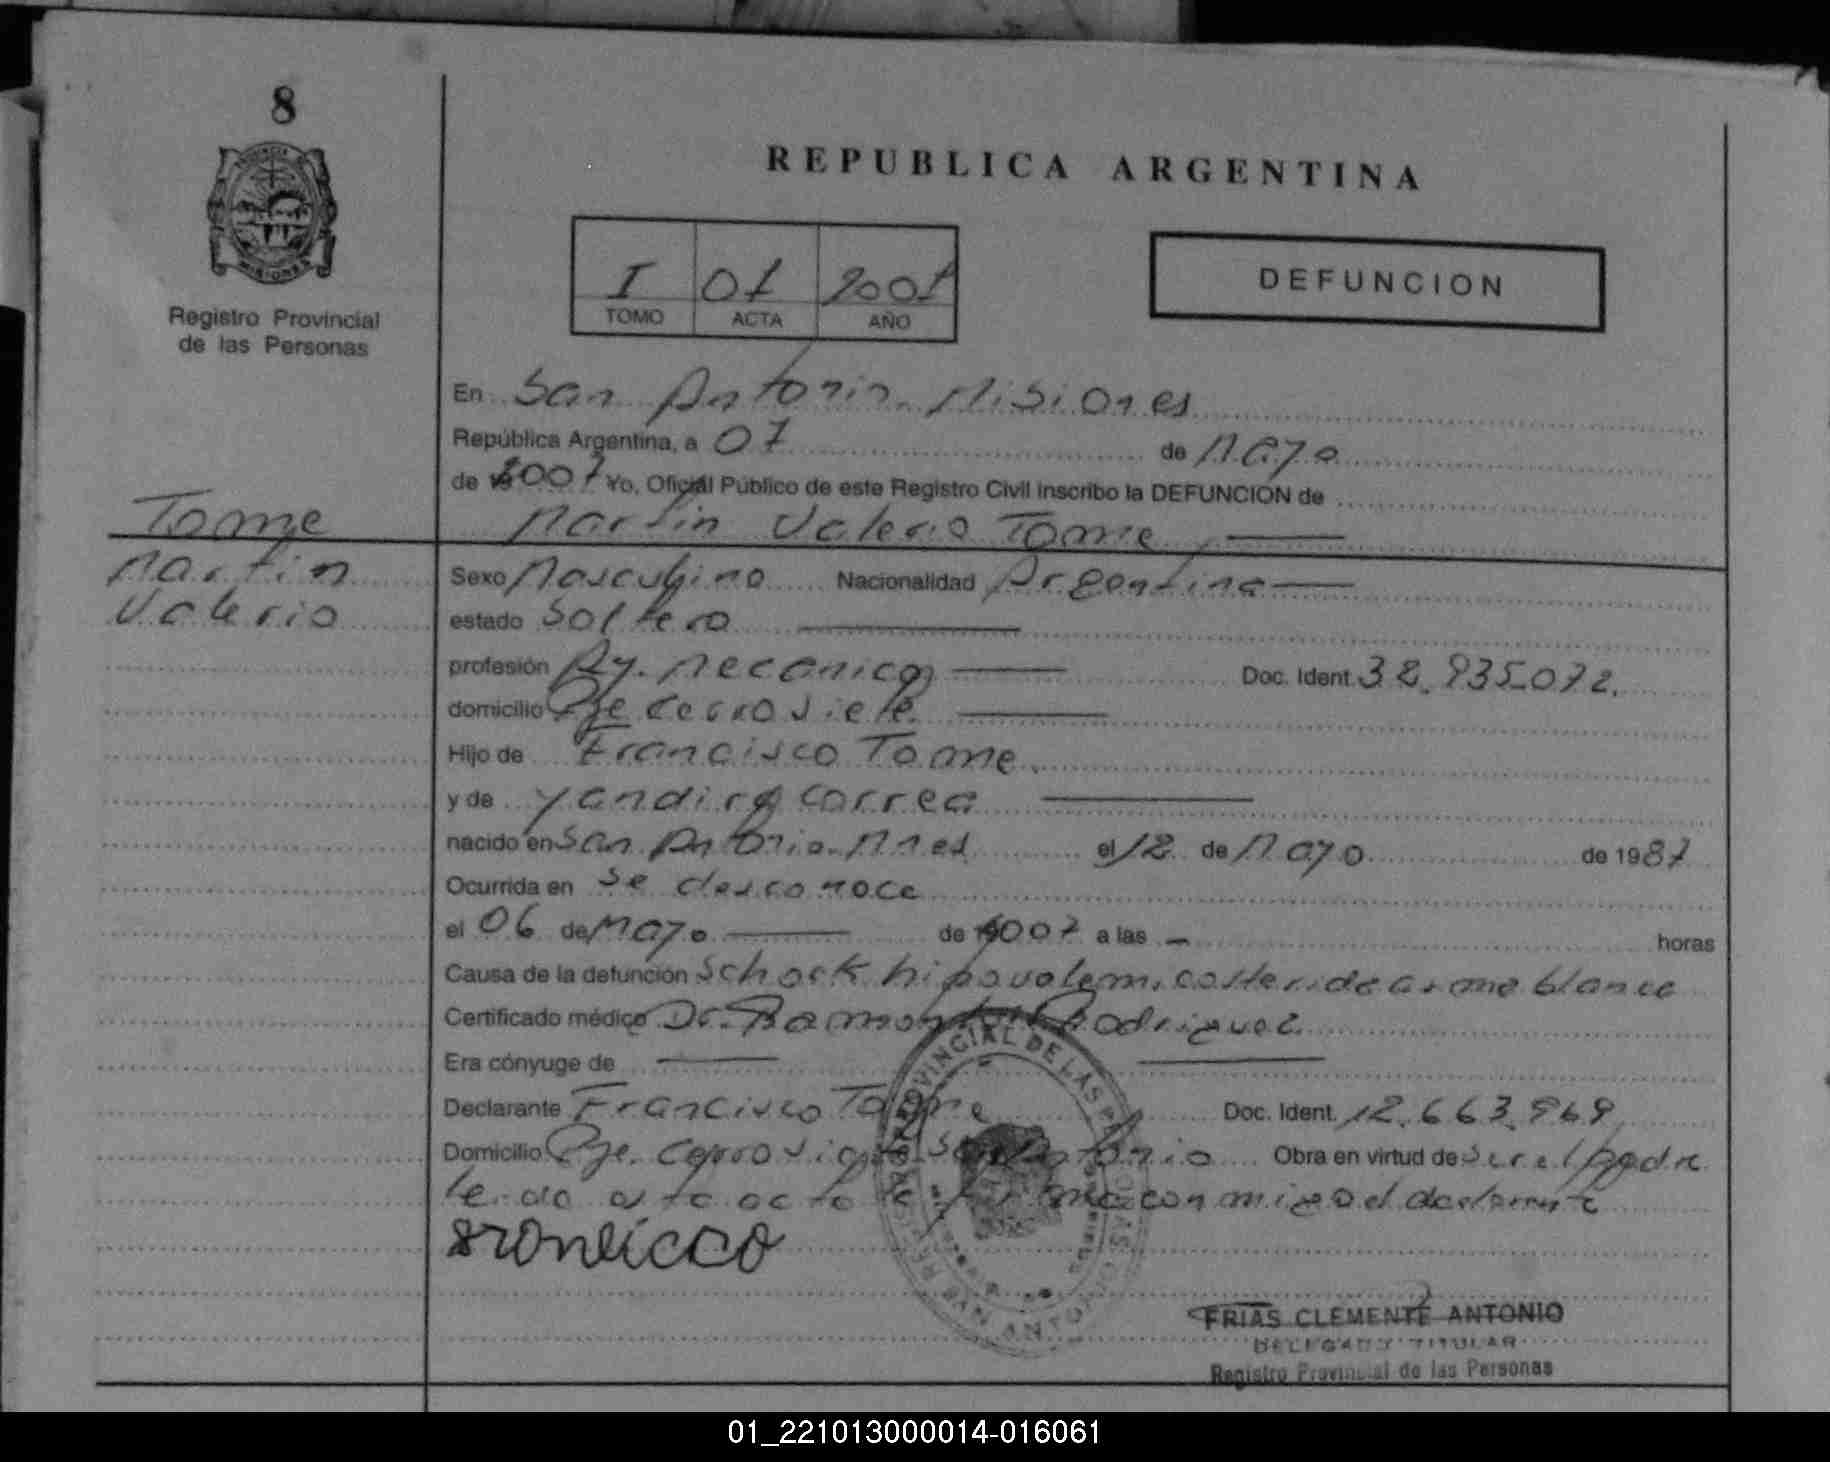 8
REPUBLICA ARGENTINA
PROVINCIA DE
MISIONES
Registro Provincial
de las Personas
I 07 2007
TOMO ACTA AÑO
DEFUNCION
En San Antonio Misiones
República Argentina, a 07 de Mayo
de 2007 Yo, Oficial Público de este Registro Civil inscribo la DEFUNCION de
Martin Valerio Tome
Tome
Martin
Valerio
Sexo Masculino Nacionalidad Argentina
estado Soltero
profesión Ay. Mecanico Doc. Ident. 38.935.072.
domicilio Pje Cerro Siete.
Hijo de Francisco Tome
y de Yandira Correa
nacido en San Antonio. Mnes el 12 de Mayo de 1987
Ocurrida en Se desconoce
el 06 de Mayo de 2007 a las - horas
Causa de la defunción Schock hipovolemico Herida arma blanca
Certificado médico Dr. Ramon Rodriguez
Era cónyuge de
Declarante Francisco Tome Doc. Ident. 12.663.969
Domicilio Pje. Cerro Siete San Antonio Obra en virtud de Ser el padre
leida esta acta la firma conmigo el declarante
REGISTRO PROVINCIAL DE LAS PERSONAS
SAN ANTONIO
MISIONES
FRIAS CLEMENTE ANTONIO
DELEGADO TITULAR
Registro Provincial de las Personas
01_221013000014-016061